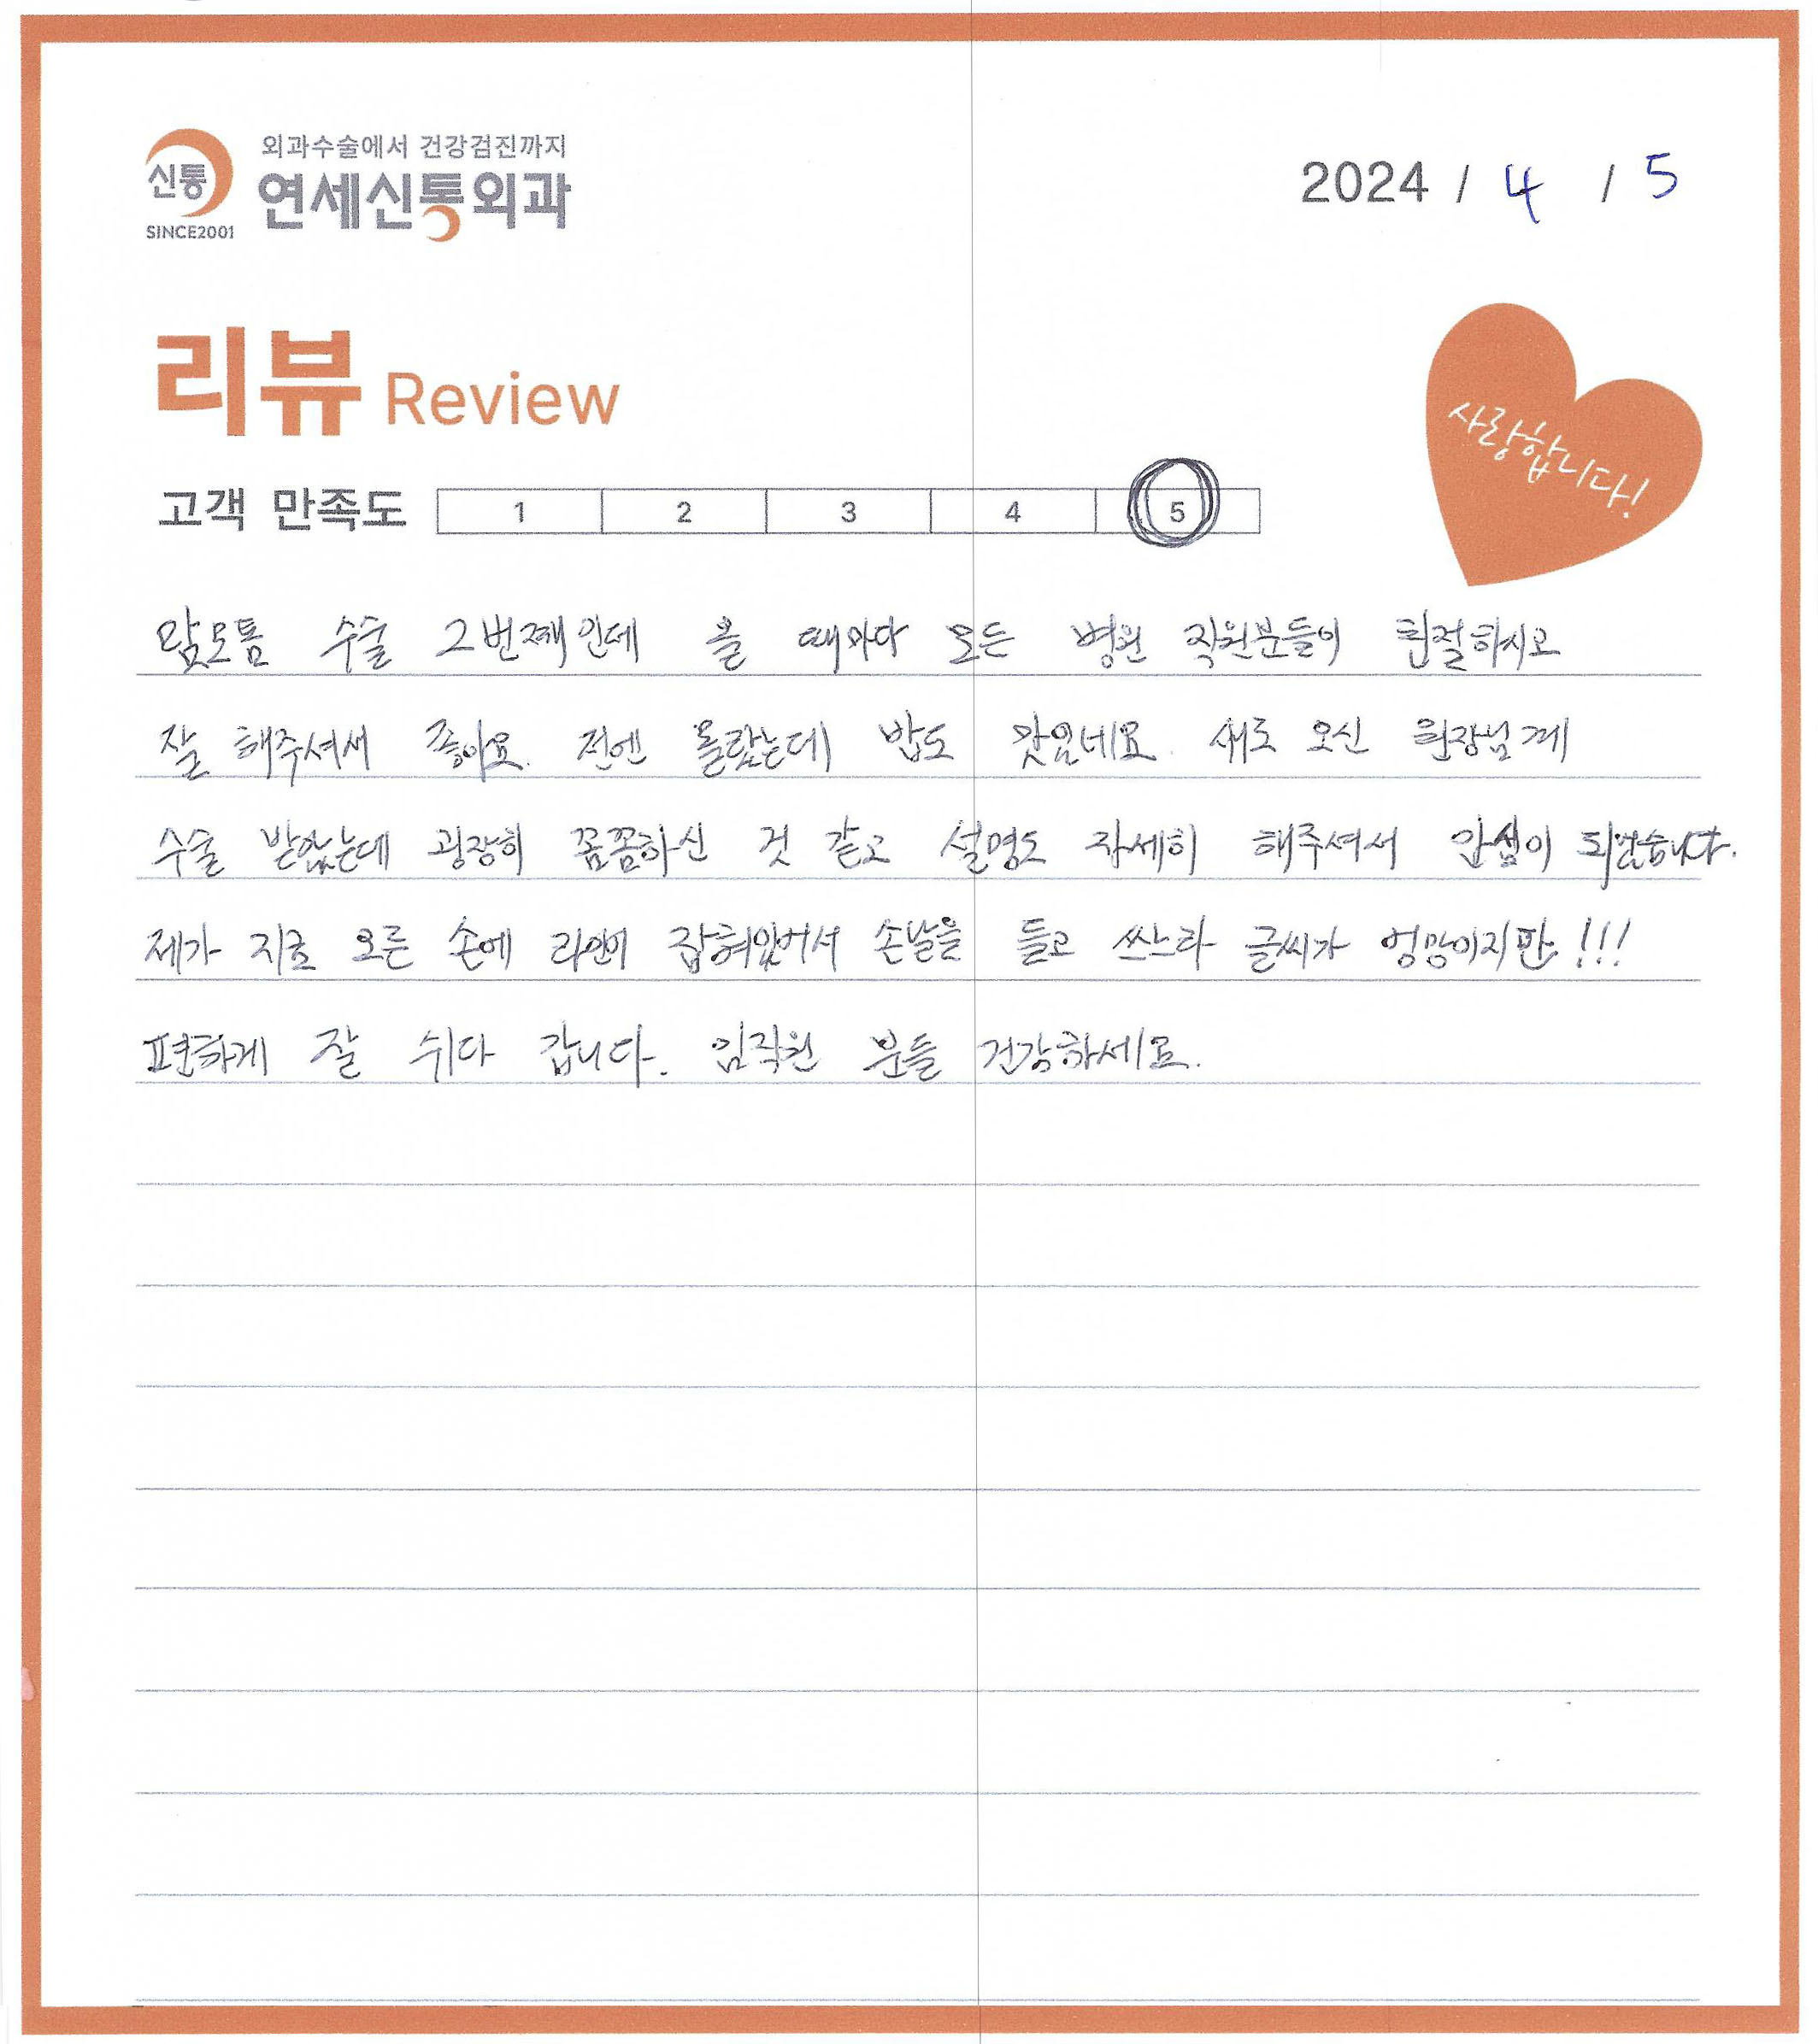 외과수술에서 건강검진까지
신통 연세신통외과
SINCE2001
2024 / 4 / 5
리뷰 Review
사랑합니다!
고객 만족도 1 2 3 4 5
맘모톰 수술 2번째인데 올 때마다 모든 병원 직원분들이 친절하시고
잘 해주셔서 좋아요. 전엔 몰랐는데 밥도 맛있네요. 새로 오신 원장님께
수술 받았는데 굉장히 꼼꼼하신 것 같고 설명도 자세히 해주셔서 안심이 되었습니다.
제가 지금 오른 손에 라인이 잡혀있어서 손날을 들고 쓰느라 글씨가 엉망이지만!!!
편하게 잘 쉬다 갑니다. 임직원 분들 건강하세요.